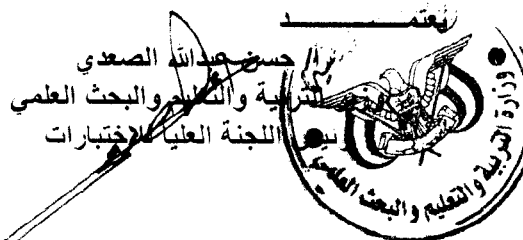 يعتمـــــــــــد
حسن عبدالله الصعدي
وزير التربية والتعليم والبحث العلمي
رئيس اللجنة العليا للاختبارات
وزارة التربية والتعليم والبحث العلمي